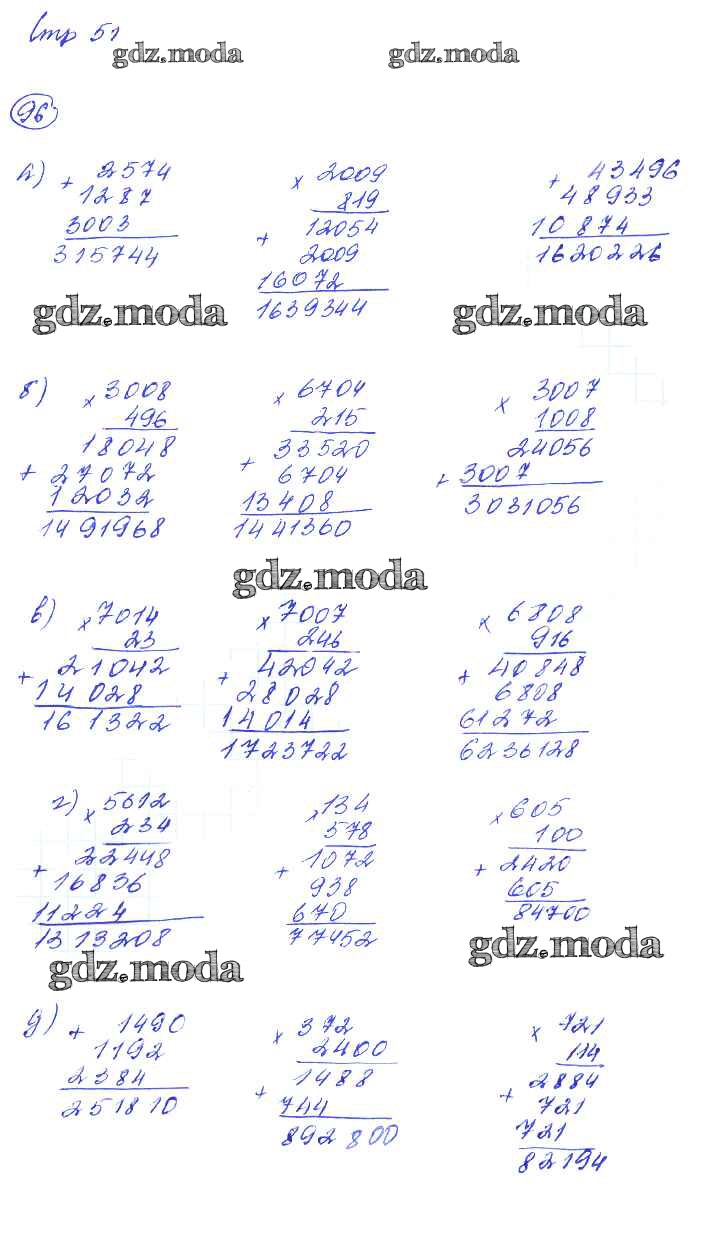 Стр 51
gdz.moda gdz.moda
96
а) + 2574 × 2009 + 43496
1287 819 48933
3003 12054 10874
315744 + 2009 1620226
16072
1639344
gdz.moda gdz.moda
б) × 3008 × 6704 × 3007
496 215 1008
18048 33520 24056
+ 27072 + 6704 + 3007
12032 13408 3031056
1491968 1441360
gdz.moda
в) × 7014 × 7007 × 6808
23 246 916
+ 21042 + 42042 + 40848
14028 28028 6808
161322 14014 61272
1723722 6236128
г) × 5612 × 134 × 605
234 578 100
+ 22448 + 1072 + 2420
16836 938 605
11224 670 84700
1313208 77452
gdz.moda gdz.moda
д) + 1490 × 372 × 721
1192 2400 114
2384 + 1488 + 2884
251810 744 721
892800 721
82194